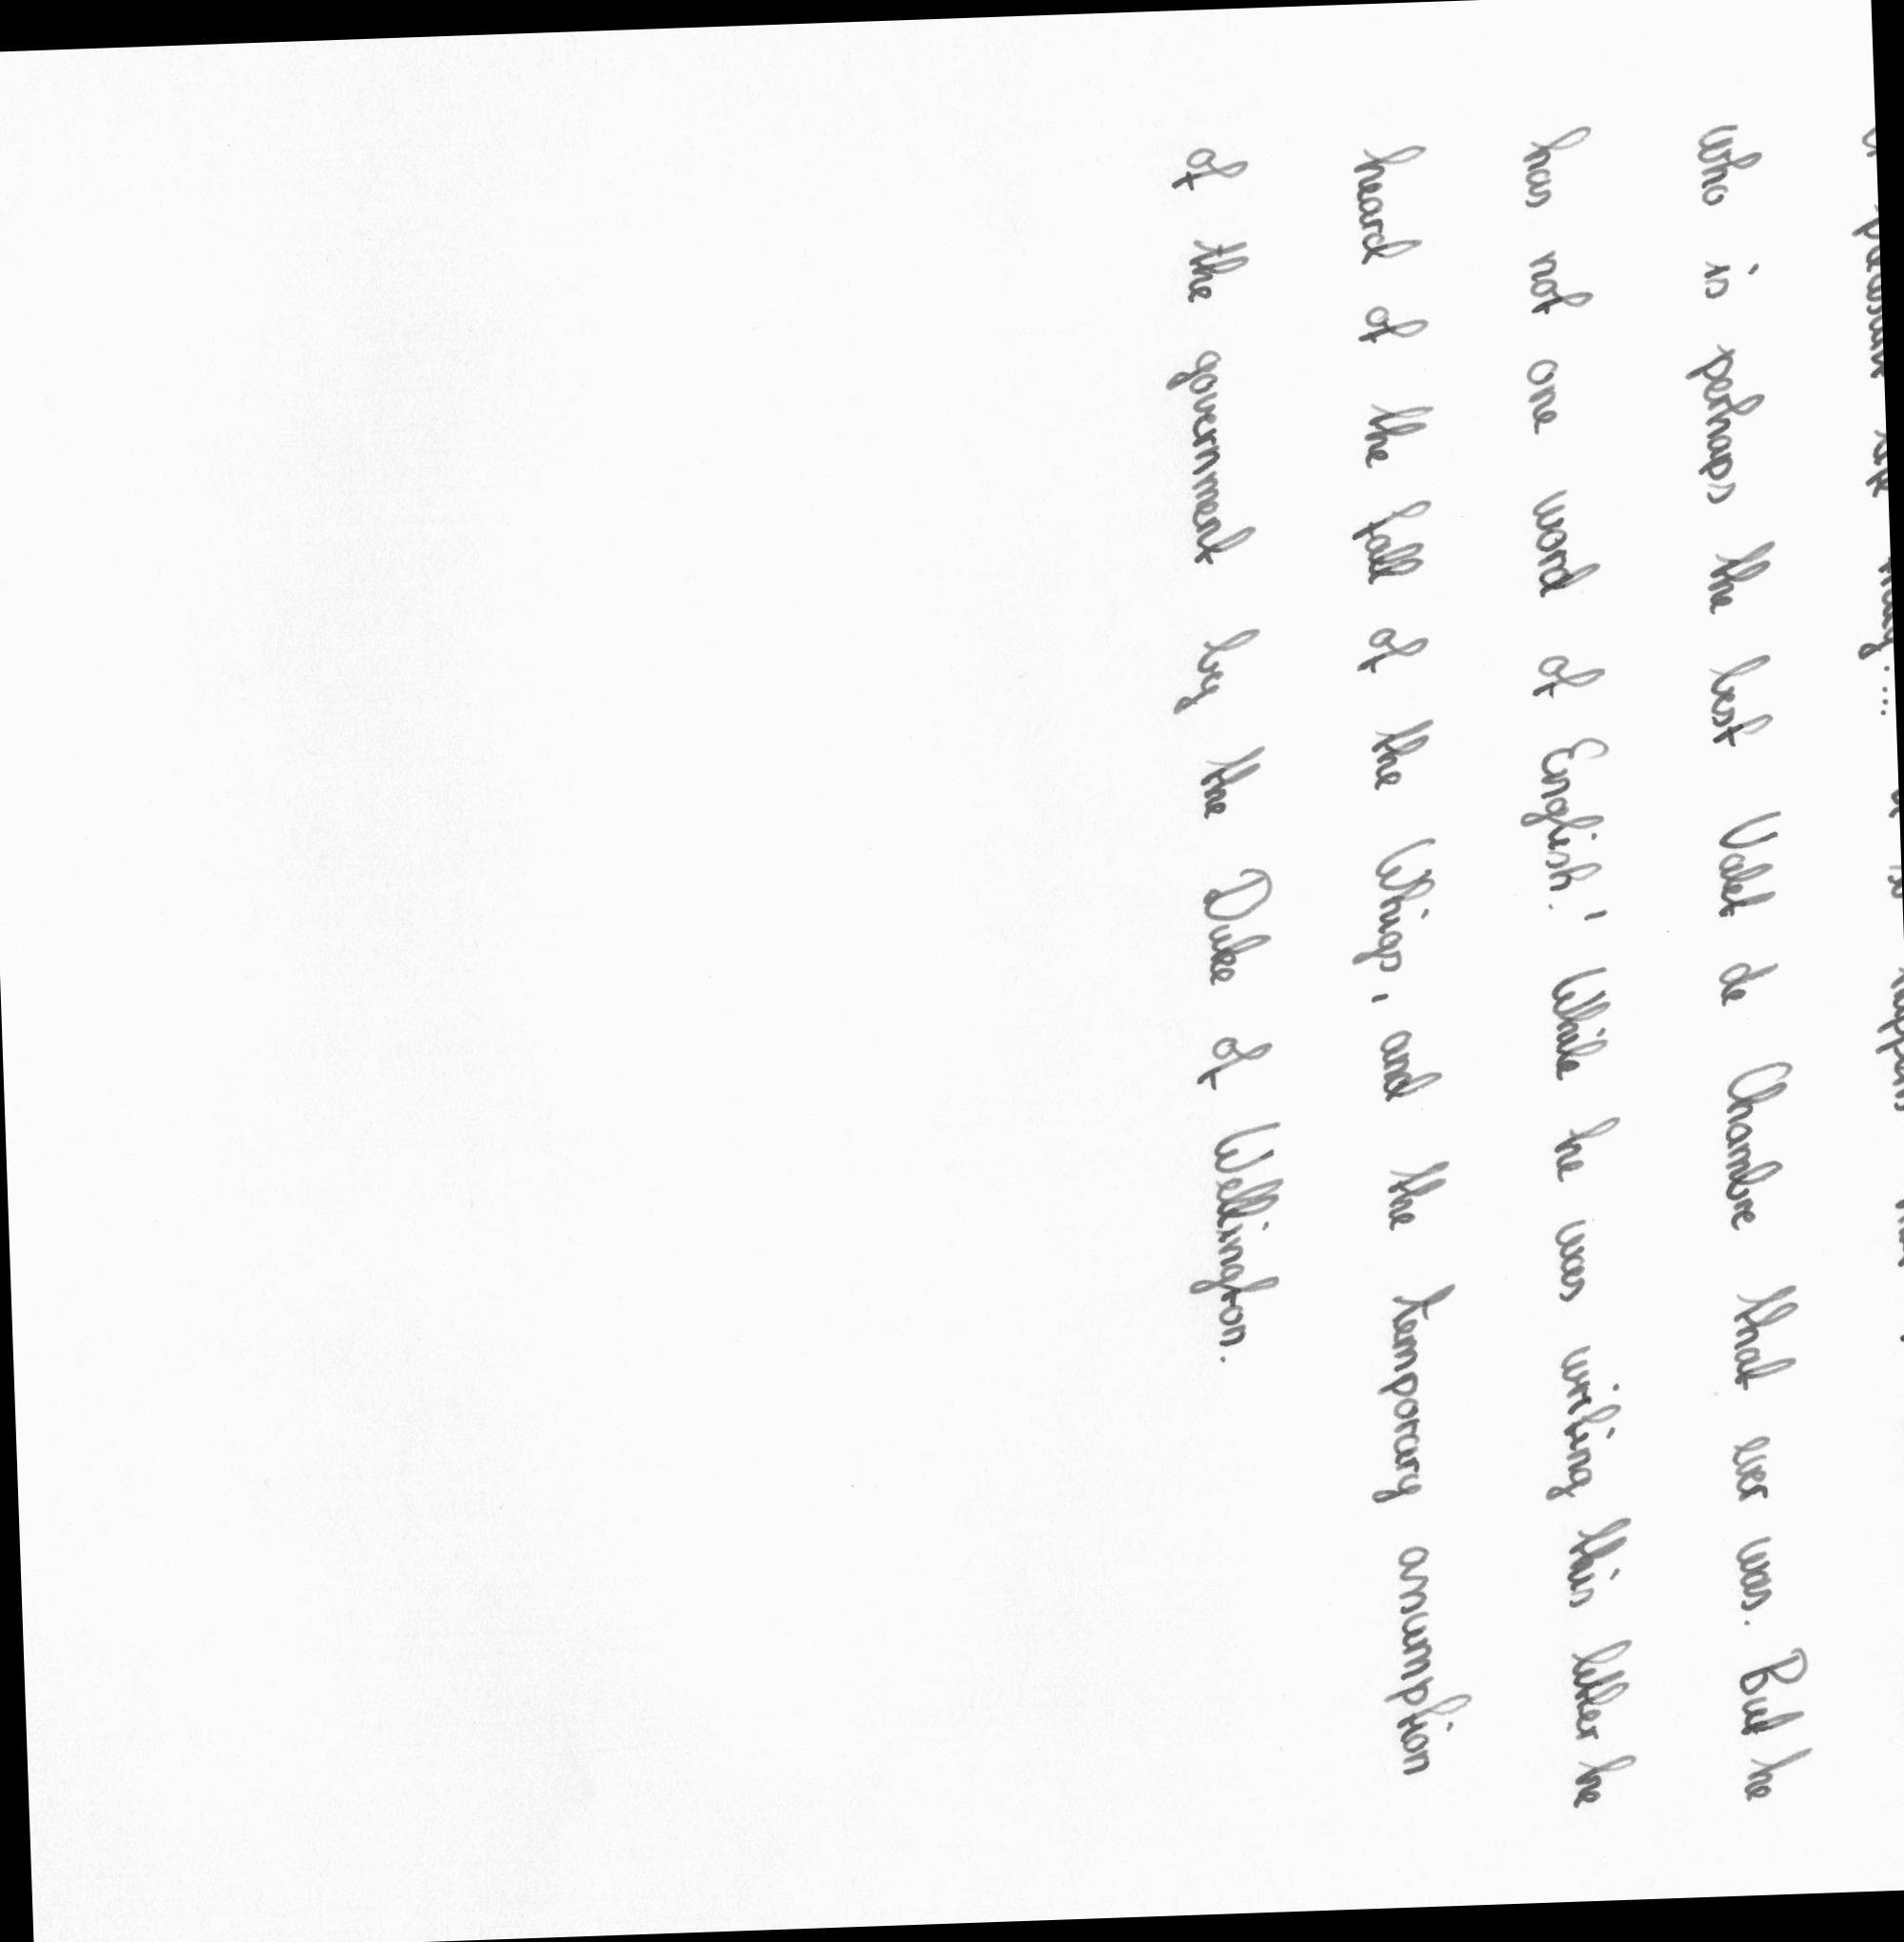 who is perhaps the best Valet de Chambre that ever was. But he
has not one word of English.' While he was writing this letter he
heard of the fall of the Whigs, and the temporary assumption
of the government by the Duke of Wellington.